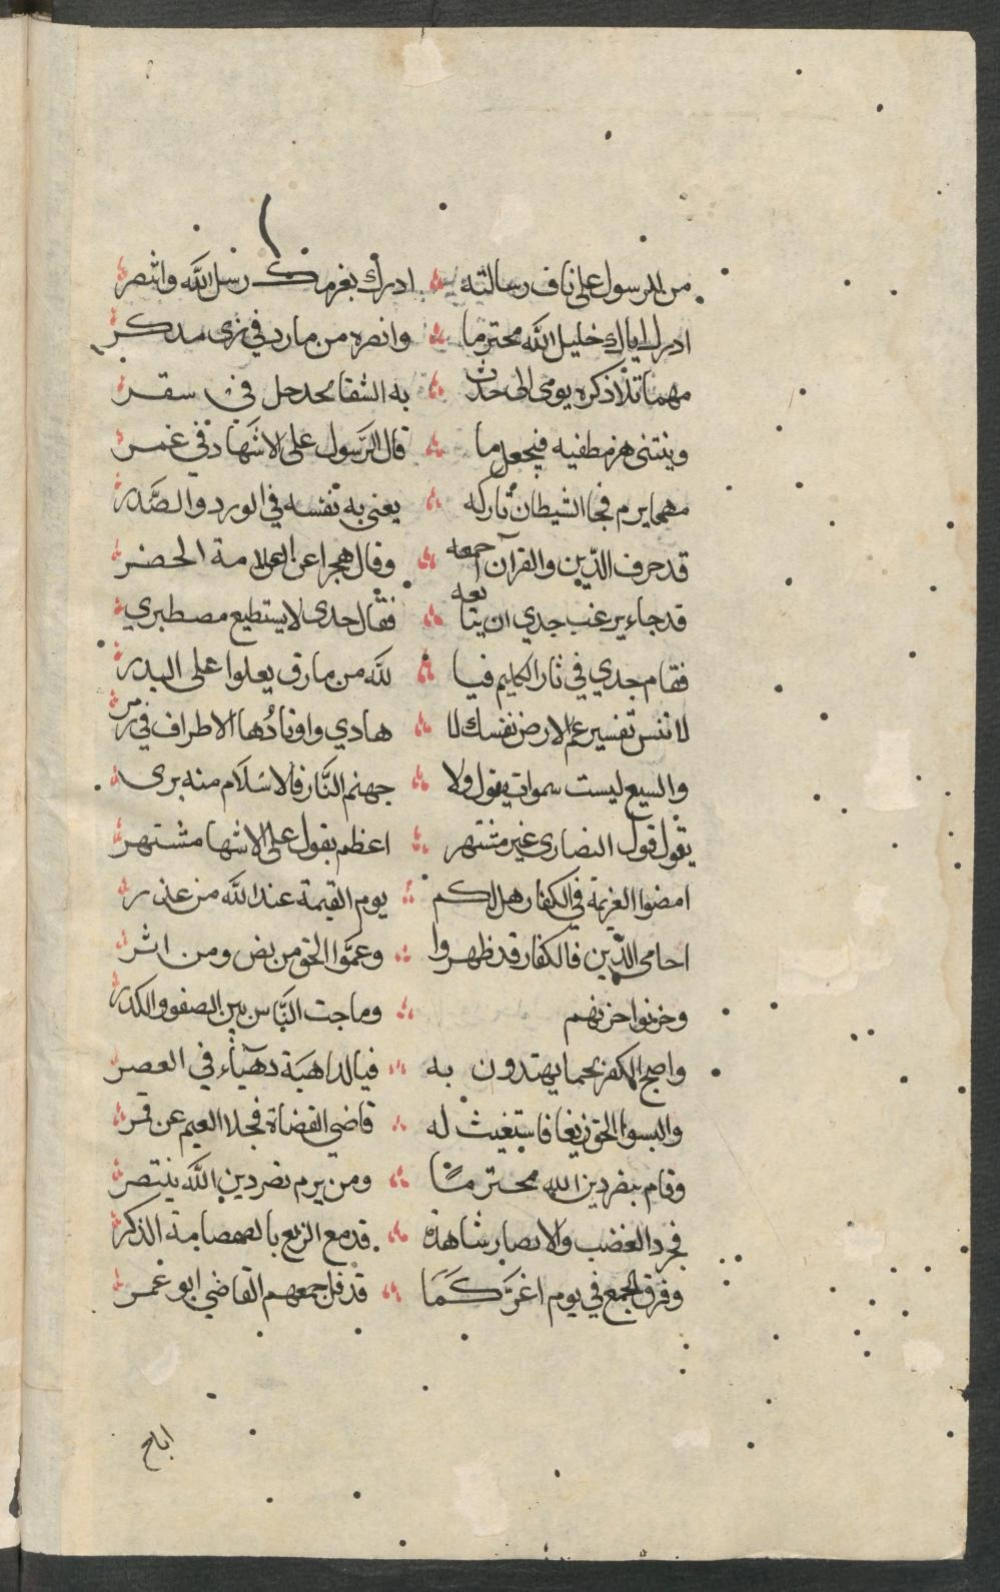 من للرسول على ناف رسالته ادرك بغرمك رسل الله وانتصر
ادرك اباك خليل الله محترما وانصره من مارد في زى مدكر
مهما تلا ذكره يومى الى حدث به الشقا لحد حل في سقر
وينتنى هز مطفيه فيجعل ما قال الرسول على الاشهاد في غمر
مهما يرم فجا الشيطان تاركه يعنى به نفسه في الورد والصدر
قد حرف الدين والقرآن اجمعه وقال هجرا عن العلامة الخضر
قد جاء يرغب جدي ان يتابعه فقال جدى لا يستطيع مصطبري
فقام جدي في ثار الكليم فيا لله من مارق يعلوا على البدر
لا تنس تفسير عم الارض نفسك لا هادي واوتادُها الاطراف في زمر
والسبع ليست سموات يقول ولا جهنم النَّار فالاسلام منه برى
يقول قول النصارى غير مشتهر اعظم بقول على الاشها مشتهر
امضوا العزيمة في الكفار هل لكم يوم القيمة عند الله من عذر
احامى الدّين فالكفار قد ظهروا وعمَّوا الحق من نص ومن اثر
وخزنوا خزنهم وماجت النَّاس بين الصفو والكدر
واصبح الكفر نجما يهتدون به فيا لداهية دهيآء في العصر
والبسوا الحق زيغا فاستغيث له قاضي القضاة فجلا الغيم عن قمر
وقام بنصر دين الله محترمًا ومن يرم نصر دين الله ينتصر
فجرد العضب والابصار شاهدة قد مع الزيغ بالصمصامة الذكر
وفرق الجمع في يوم اغر كما قد فل جمعهم القاضي ابو عمر
اباح